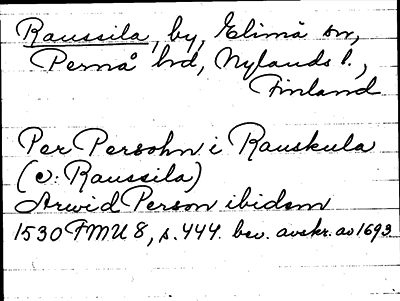 Raussila, by, Elimä sn,
Pernå hd, Nylands l.,
Finland
Per Persohn i Rauskula
(ɔ: Raussila)
Arwid Person ibidem
1530 FMU 8, s. 444. bev. avskr. av 1693.